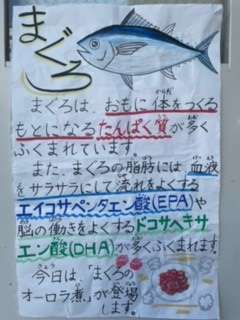 まぐろ
まぐろは、おもに体をつくる
もとになるたんぱく質が多く
ふくまれています。
また、まぐろの脂肪には血液
をサラサラにして流れをよくする
エイコサペンタエン酸(EPA)や
脳の働きをよくするドコサヘキサ
エン酸(DHA)が多くふくまれます。
今日は「まぐろの
オーロラ煮」が登場
します。